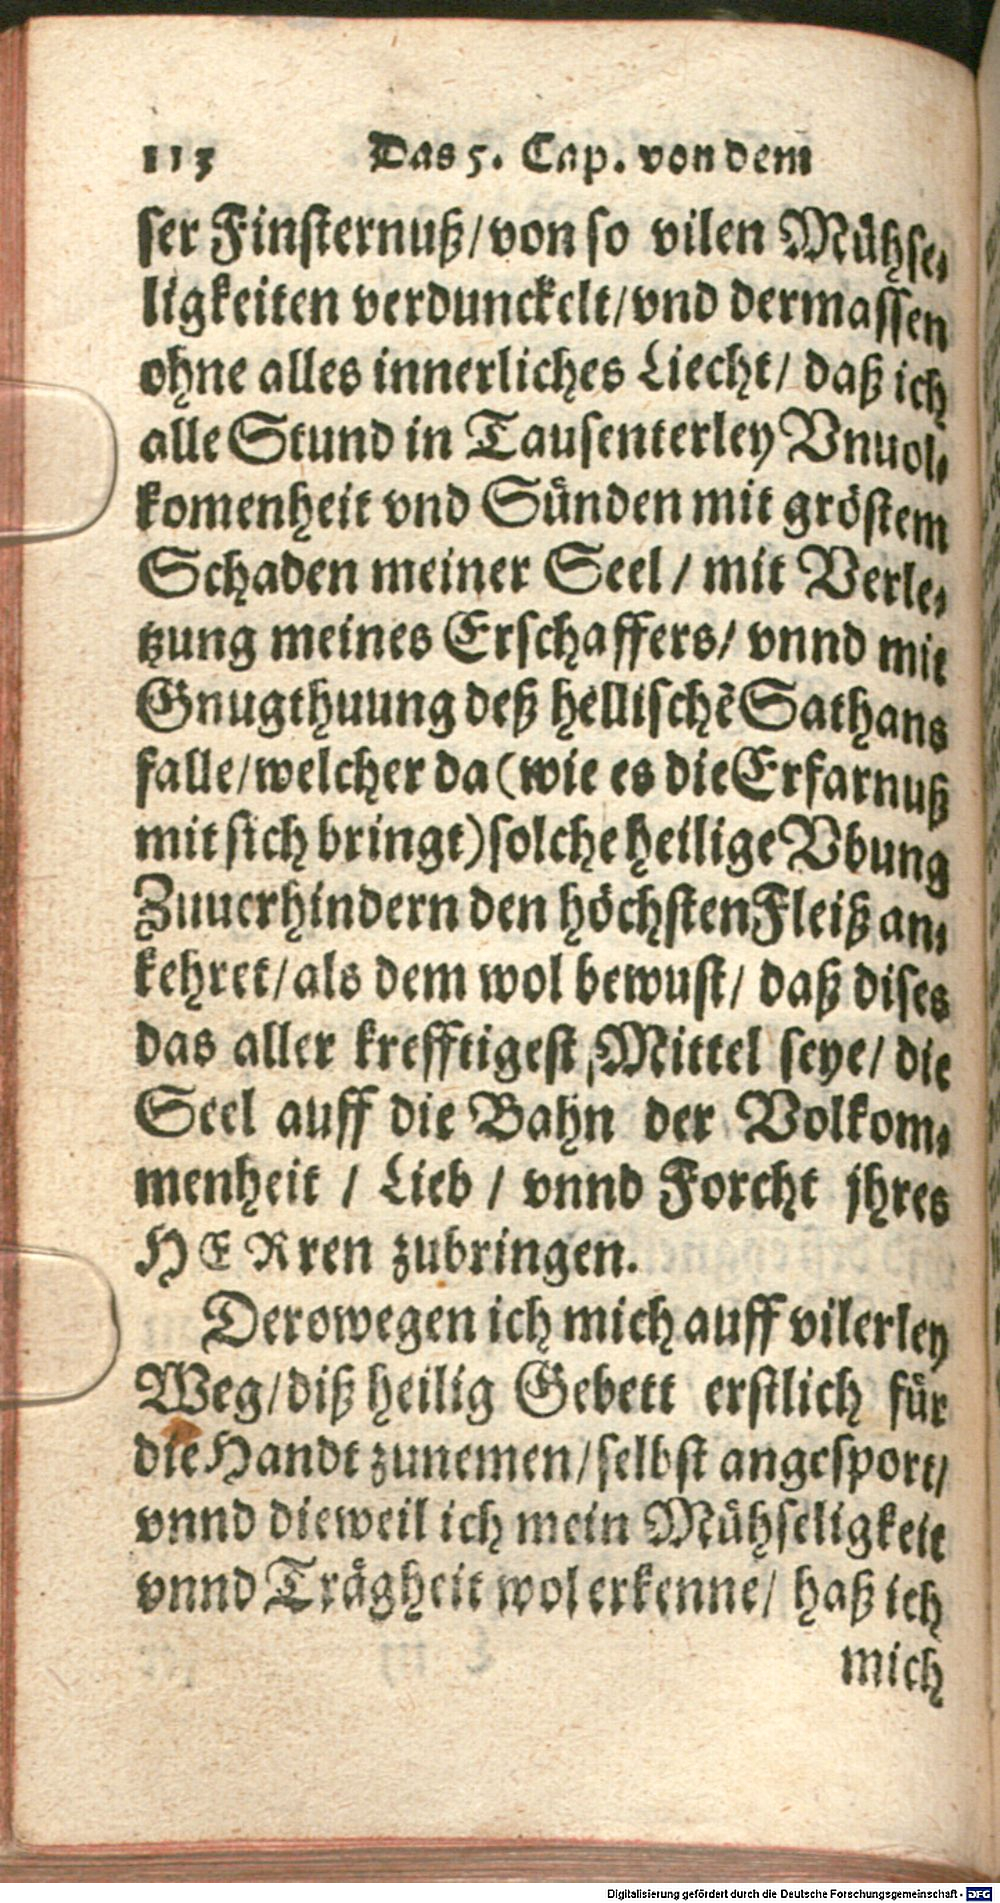 113 Das 5. Cap. von dem
ser Finsternuß/von so vilen Mühse-
ligkeiten verdunckelt/vnd dermassen
ohne alles innerliches Liecht/ daß ich
alle Stund in Tausenterley Vnuol-
komenheit vnd Sünden mit gröstem
Schaden meiner Seel / mit Verle-
tzung meines Erschaffers/ vnnd mit
Gnugthuung deß hellischẽ Sathans
falle/welcher da (wie es die Erfarnuß
mit sich bringt) solche heilige Vbung
Zuuerhindern den höchsten Fleiß an-
kehret/als dem wol bewust/ daß dises
das aller krefftigest Mittel seye/ die
Seel auff die Bahn der Volkom-
menheit / Lieb / vnnd Forcht jhres
HERren zubringen.
Derowegen ich mich auff vilerley
Weg/diß heilig Gebett erstlich für
die Handt zunemen/selbst angesport/
vnnd dieweil ich mein Mühseligkeit
vnnd Trägheit wol erkenne/ haß ich
mich
Digitalisierung gefördert durch die Deutsche Forschungsgemeinschaft - DFG